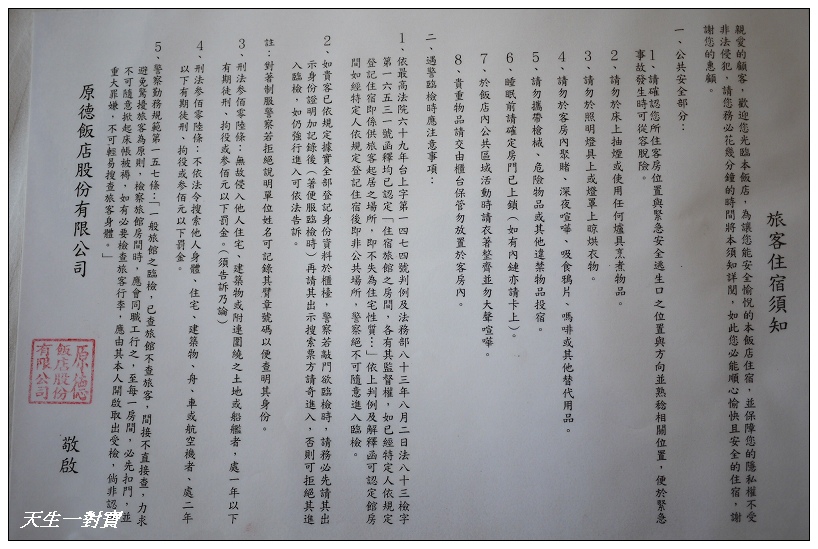 旅客住宿須知
親愛的顧客，歡迎您光臨本飯店，為讓您能安全愉悅的本飯店住宿，並保障您的隱私權不受
非法侵犯，請您務必花幾分鐘的時間將本須知詳閱，如此您必能順心愉快且安全的住宿，謝
謝您的惠顧。
一、公共安全部分：
1、請確認您所住客房位置與緊急安全逃生口之位置與方向並熟稔相關位置，便於緊急
事故發生時可從容脫險。
2、請勿於床上抽煙或使用任何爐具烹煮物品。
3、請勿於照明燈具上或燈罩上晾烘衣物。
4、請勿於客房內聚賭、深夜喧嘩、吸食鴉片、嗎啡或其他替代用品。
5、請勿攜帶槍械、危險物品或其他違禁物品投宿。
6、睡眠前請確定房門已上鎖（如有內鏈亦請卡上）。
7、於飯店內公共區域活動時請衣著整齊並勿大聲喧嘩。
8、貴重物品請交由櫃台保管勿放置於客房內。
二、遇警臨檢時應注意事項：
1、依最高法院六十九年台上字第一四七四號判例及法務部八十三年八月二日法八十三檢字
第一六五三一號函釋均已認定「住宿旅館之房間，各有其監督權，如已經特定人依規定
登記住宿即係供旅客起居之場所，即不失為住宅性質…」依上判例及解釋函可認定館房
間如經特定人依規定登記住宿後即非公共場所，警察絕不可隨意進入臨檢。
2、如貴客已依規定據實全部登記身份資料於櫃檯，警察若敲門欲臨檢時，請務必先請其出
示身份證明加記錄後（著便服臨檢時）再請其出示搜索票方請奇進入，否則可拒絕其進
入臨檢，如仍強行進入可依法告訴。
註：對著制服警察若拒絕說明單位姓名可記錄其臂章號碼以便查明其身份。
3、刑法叁佰零陸條：無故侵入他人住宅、建築物或附連圍繞之土地或船艦者，處一年以下
有期徒刑、拘役或叁佰元以下罰金。（須告訴乃論）
4、刑法叁佰零陸條：不依法令搜索他人身體、住宅、建築物、舟、車或航空機者、處二年
以下有期徒刑、拘役或叁佰元以下罰金。
5、警察勤務規範第一五七條：「一般旅館之臨檢，已查旅館不查旅客，間接不直接查，力求
避免驚擾旅客為原則，檢察旅館房間時，應會同職工行之，至每一房間，必先扣門，並
不可隨意掀起床帳被褥，如有必要檢查旅客行李，應由其本人開啟取出受檢，倘非認
重大罪嫌，不可輕易搜查旅客身體。」
原德飯店股份有限公司
敬啟
原德
飯店股份
有限公司
天生一對寶